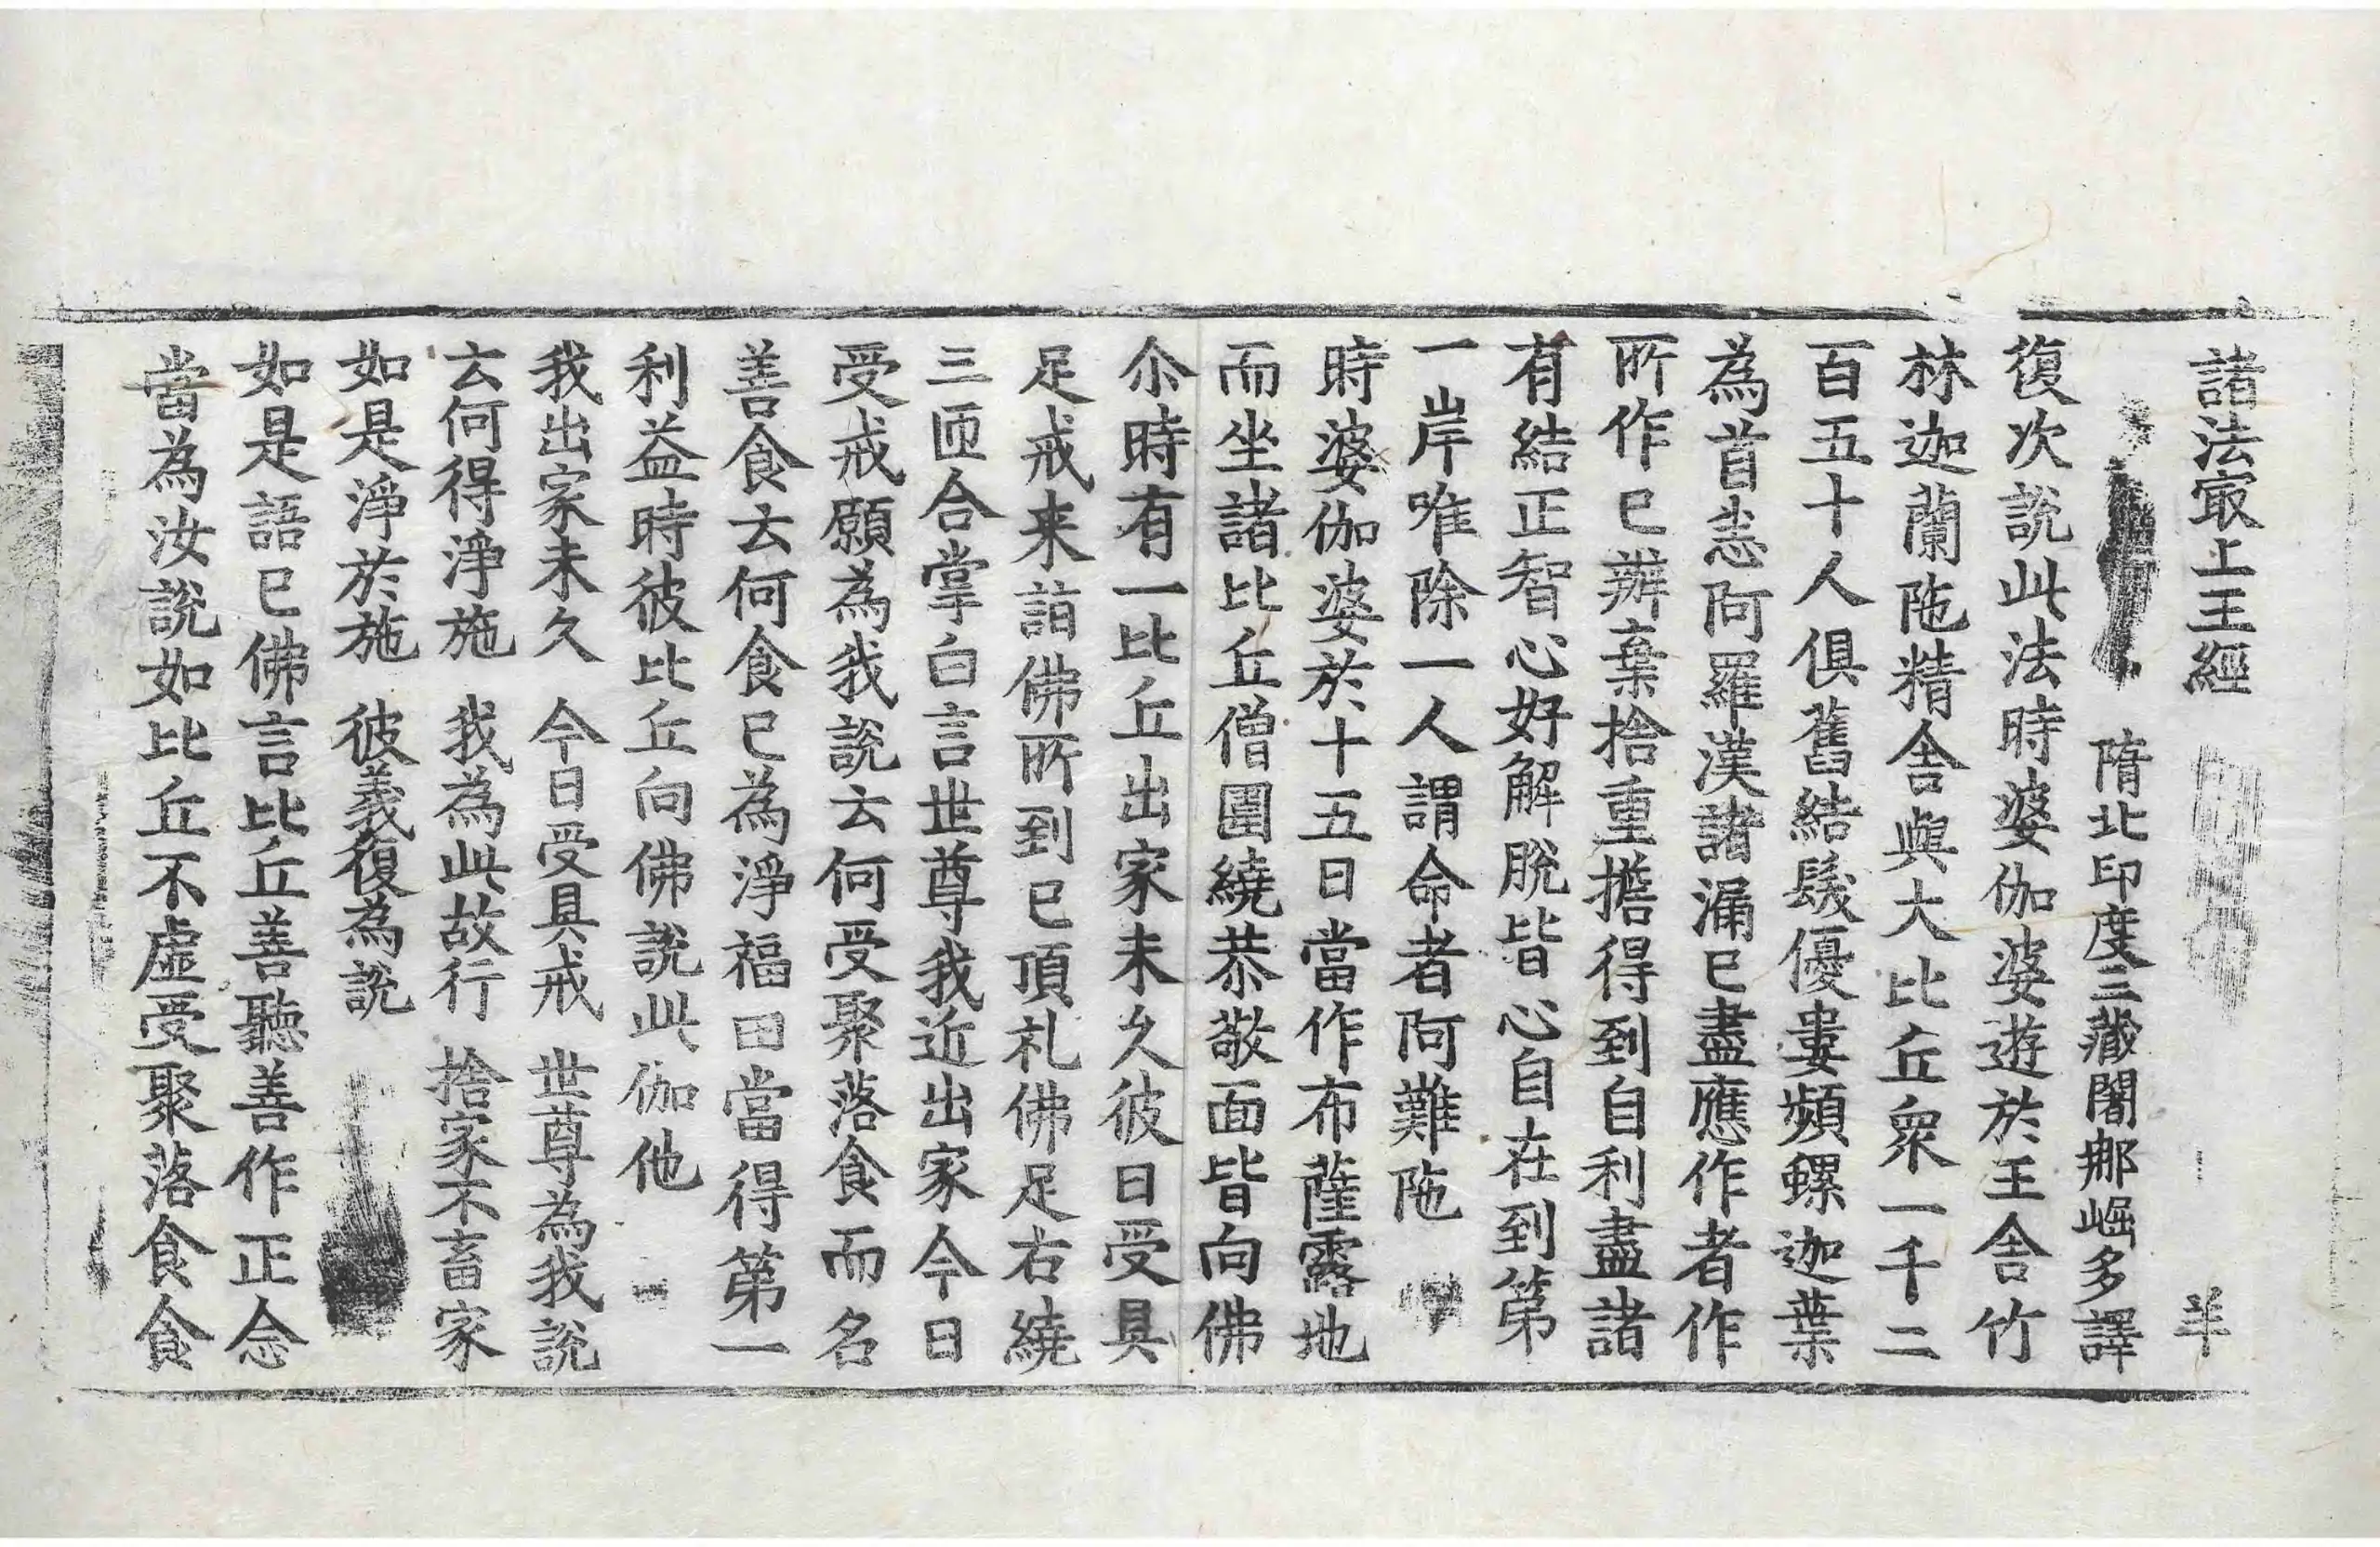 諸法㝡上王經 羊
隋北印度三藏闍那崛多譯
復次說此法時婆伽婆遊於王舍竹
林迦蘭陁精舍與大比丘衆一千二
百五十人俱舊結髮優婁頻螺迦葉
為首悉阿羅漢諸漏已盡應作者作
所作已辦棄捨重擔得到自利盡諸
有結正智心好解脫皆心自在到第
一岸唯除一人謂命者阿難陁
時婆伽婆於十五日當作布薩露地
而坐諸比丘僧圍繞恭敬面皆向佛
尒時有一比丘出家未久彼日受具
足戒来詣佛所到已頂礼佛足右繞
三匝合掌白言世尊我近出家今日
受戒願為我說云何受聚落食而名
善食云何食已為淨福田當得第一
利益時彼比丘向佛說此伽他
我出家未久 今日受具戒 世尊為我說
云何得淨施 我為此故行 捨家不畜家
如是淨於施 彼義復為說
如是語已佛言比丘善聽善作正念
當為汝說如比丘不虛受聚落食食